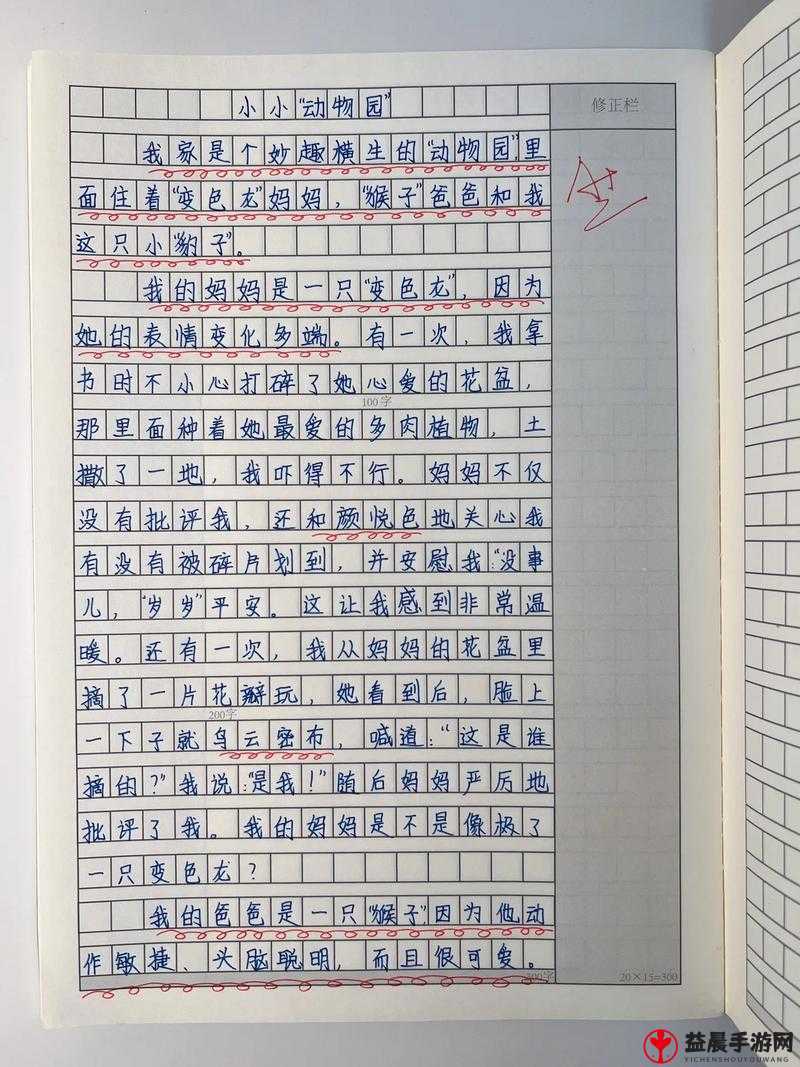 小小“动物园”
修正栏
A+
我家是个妙趣横生的“动物园”里
面住着“变色龙”妈妈，“猴子”爸爸和我
这只小“豹子”。
我的妈妈是一只“变色龙”，因为
她的表情变化多端。有一次，我拿
书时不小心打碎了她心爱的花盆，
100字
那里面种着她最爱的多肉植物，土
撒了一地，我吓得不行。妈妈不仅
没有批评我，还和颜悦色地关心我
有没有被碎片划到，并安慰我“没事
儿，“岁岁”平安。这让我感到非常温
暖。还有一次，我从妈妈的花盆里
摘了一片花瓣玩，她看到后，脸上
200字
一下子就乌云密布，喊道：“这是谁
摘的？”我说：“是我！”随后妈妈严厉地
批评了我。我的妈妈是不是像极了
一只变色龙？
我的爸爸是一只“猴子”因为他动
作敏捷、头脑聪明，而且很可爱。
300字
20×15=300
益晨手游网
YICHENSHOUYOUWANG